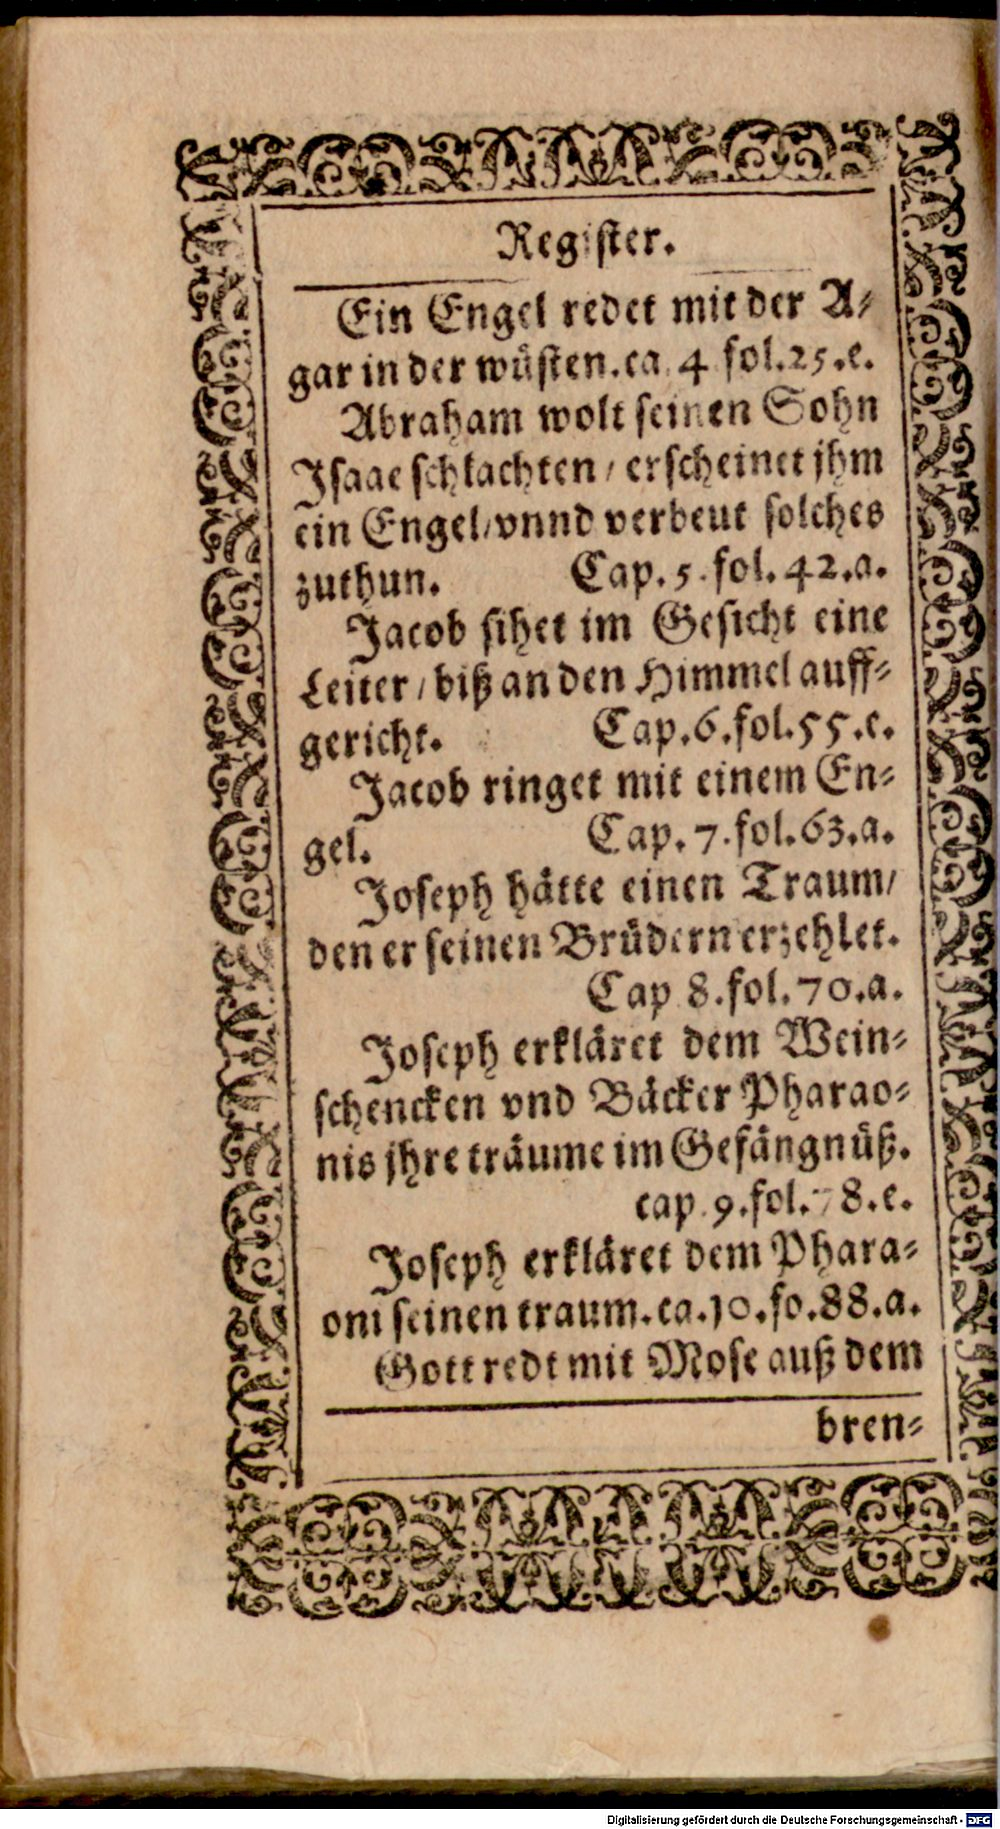 Register.
Ein Engel redet mit der A⸗
gar in der wüsten. ca. 4 fol. 25. e.
Abraham wolt seinen Sohn
Isaac schlachten / erscheinet jhm
ein Engel / vnnd verbeut solches
zuthun. Cap. 5. fol. 42. a.
Jacob sihet im Gesicht eine
Leiter / biß an den Himmel auff⸗
gericht. Cap. 6. fol. 55. e.
Jacob ringet mit einem En⸗
gel. Cap. 7. fol. 63. a.
Joseph hätte einen Traum /
den er seinen Brüdern erzehlet.
Cap 8. fol. 70. a.
Joseph erkläret dem Wein⸗
schencken vnd Bäcker Pharao⸗
nis jhre träume im Gefängnüß.
cap. 9. fol. 78. e.
Joseph erkläret dem Phara⸗
oni seinen traum. ca. 10. fo. 88. a.
Gott redt mit Mose auß dem
bren⸗
Digitalisierung gefördert durch die Deutsche Forschungsgemeinschaft - DFG